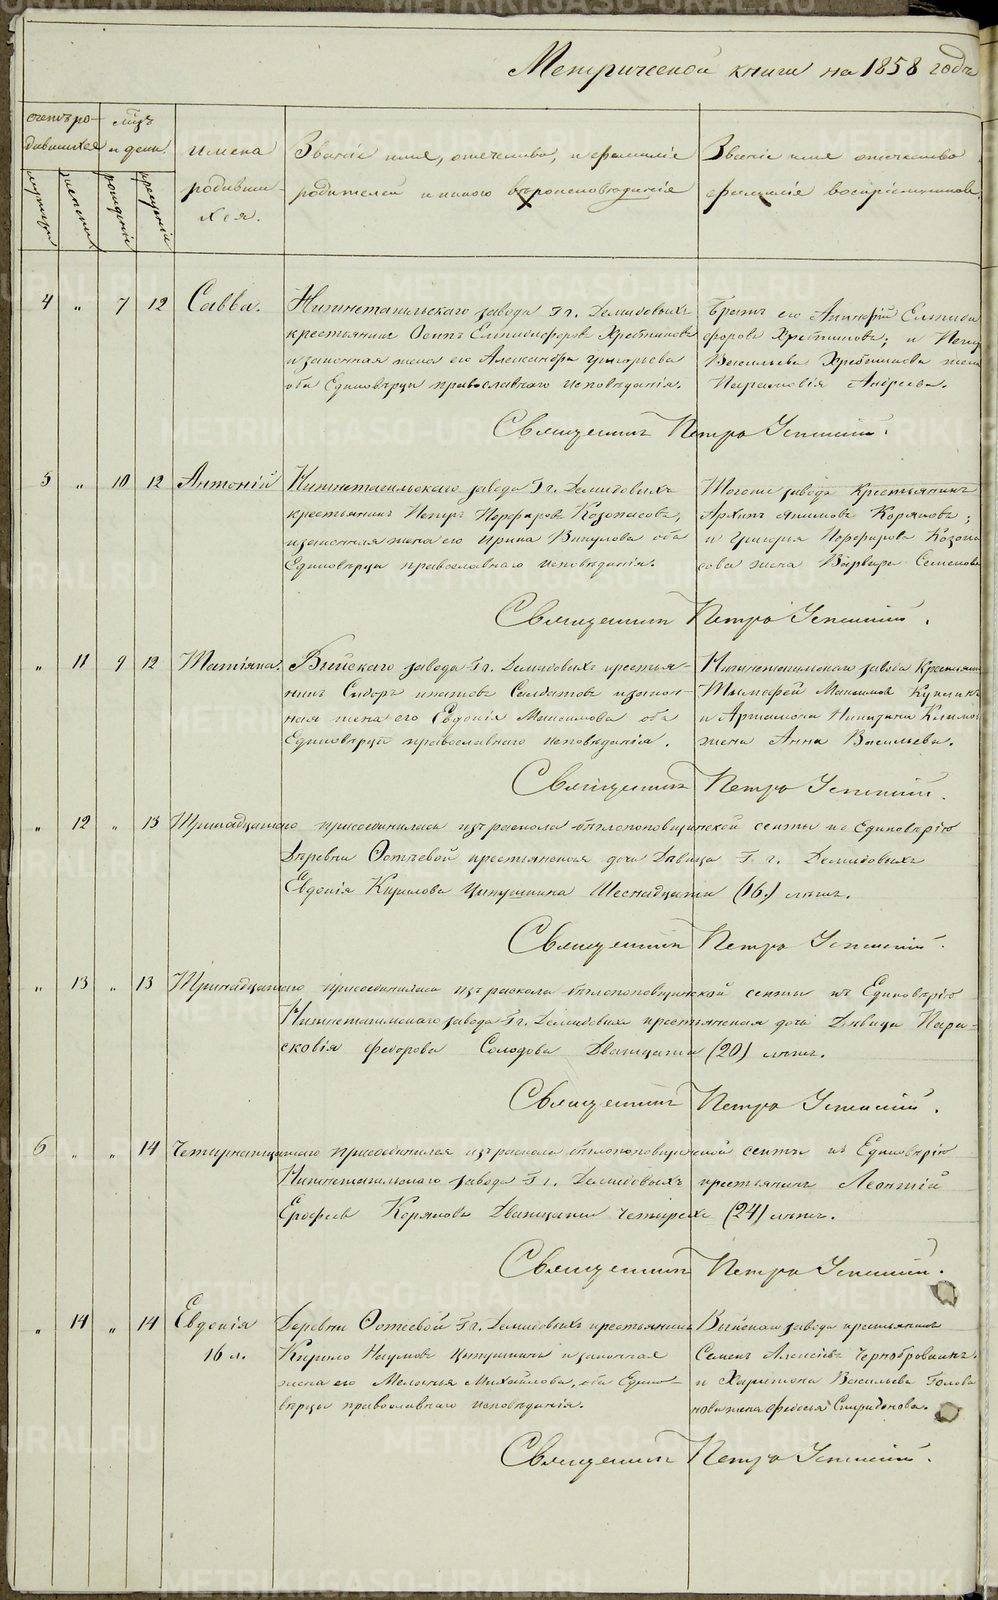 Метрической книги на 1858 годъ
счетъ ро-
дившихся
мѣсяцъ
и день
имена
родивши-
хся.
Званіе имя, отечество, и фамиліе
родителей и какого вѣроисповѣданія
Званіе имя отечество
фамиліе воспріемниковъ
мужеска
женска
рожденія
крещенія
4 " 7 12 Савва.
Нижнетагильскаго завода Гг. Демидовыхъ
крестьянинъ Осипъ Елпидифоровъ Хребтиковъ
и законная жена его Александра Григорьева
оба Единовѣрцы православнаго исповѣданія.
Братъ его Елпиди
форовъ и
Васильева жена
Параскевія Андреева.
Священникъ Петръ Успенскій.
5 " 10 12 Антоній
Нижнетагильскаго завода Гг. Демидовыхъ
крестьянинъ Петръ Порфировъ Козопасовъ,
и законная жена его Ирина Викулова оба
Единовѣрцы православнаго исповѣданія.
Тогоже завода крестьянинъ
Архипъ Акимовъ Коряковъ;
и Григорья Порфирова Козопа
сова жена Варвара Семенова
Священникъ Петръ Успенскій.
" 11 9 12 Татіяна.
Выйскаго завода Гг. Демидовыхъ крестья-
нинъ Сидоръ Солдатовъ и закон-
ная жена его Евдокія Максимова оба
Единовѣрцы православнаго исповѣданія.
Нижнетагильскаго завода крестьянин
Тимофей Максимовъ
и Артамона Никитина
жена Анна Васильева.
Священникъ Петръ Успенскій.
" 12 " 13 Тринадцатаго присоединилась изъ раскола бѣглопоповщинской секты къ Единовѣрію
Деревни крестьянская дочь дѣвица Г. г. Демидовыхъ
Евдокія Кирилова Ципушкина Шеснадцати (16.) лѣтъ.
Священникъ Петръ Успенскій.
" 13 " 13 Тринадцатаго присоединилась изъ раскола бѣглопоповщинской секты къ Единовѣрію
Нижнетагильскаго завода Гг. Демидовыхъ крестьянская дочь Дѣвица Пара-
сковія Федорова Солодова Двадцати (20) лѣтъ.
Священникъ Петръ Успенскій.
6 " " 14 Четырнатцатаго присоединился изъ раскола бѣглопоповщинской секты къ Единовѣрію
Нижнетагильскаго завода Гг. Демидовыхъ крестьянинъ Леонтій
Ерофеевъ Коряковъ Двадцати четырехъ (24) лѣтъ.
Священникъ Петръ Успенскій.
" 14 " 14 Евдокія
16 л.
Деревни Гг. Демидовыхъ крестьянинъ
Кирило Наумовъ Ципушкинъ и законная
жена его Меланья Михайлова, оба Едино-
вѣрцы православнаго исповѣданія.
Выйскаго завода крестьянинъ
Семенъ Алексѣевъ Чернобровинъ.
и Харитона Васильева Голова
нова жена Федосья Спиридонова.
Священникъ Петръ Успенскій.
METRIKI.GASO-URAL.RU